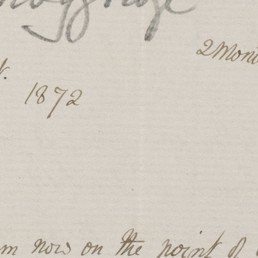 2 Mont
1872
m now on the point of